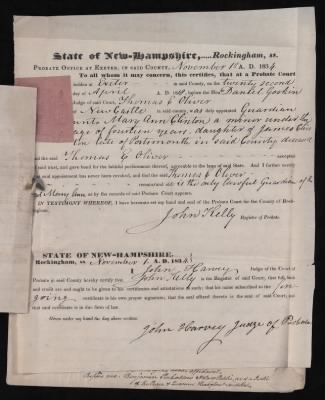 State of New-Hampshire,.....Rockingham, ss.
PROBATE OFFICE AT EXETER, IN SAID COUNTY, November 1st A.D. 1834
To all whom it may concern, this certifies, that at a Probate Court
holden at Exeter in said County, on the twenty second
day of April A. D. before the Hon. Daniel Gookin
Judge of said Court, Thomas E Oliver
of New Castle was duly appointed Guardian
unto Mary Ann Clinton a minor under the
age of fourteen years, daughter of James Clin
ton late of Portsmouth in said County deceased
and the said Thomas E Oliver accepted
said trust, and gave bond for the faithful performance thereof, agreeable to the laws of said State. And I further certify
that said appointment has never been revoked, and that the said Thomas E Oliver
is the only lawful Guardian of the
said Mary Ann, as by the records of said Probate Court appears.
IN TESTIMONY WHEREOF, I have hereunto set my hand and seal of the Probate Court for the County of Rock-
ingham.
John Kelly
Register of Probate.
STATE OF NEW-HAMPSHIRE.
Rockingham, ss November 1. A.D. 1834
I John Harvey Judge of the Court of
Probate in said County hereby certify that John Kelly is the Register of said Court, that full faith
and credit are and ought to be given to his certificates and attestations as such; that his name subscribed to the fore
going certificate is his own proper signature; that the seal affixed thereto is the seal of said Court, and
that said certificate is in due form of law.
Given under my hand the day above written
John Harvey Judge of Probate